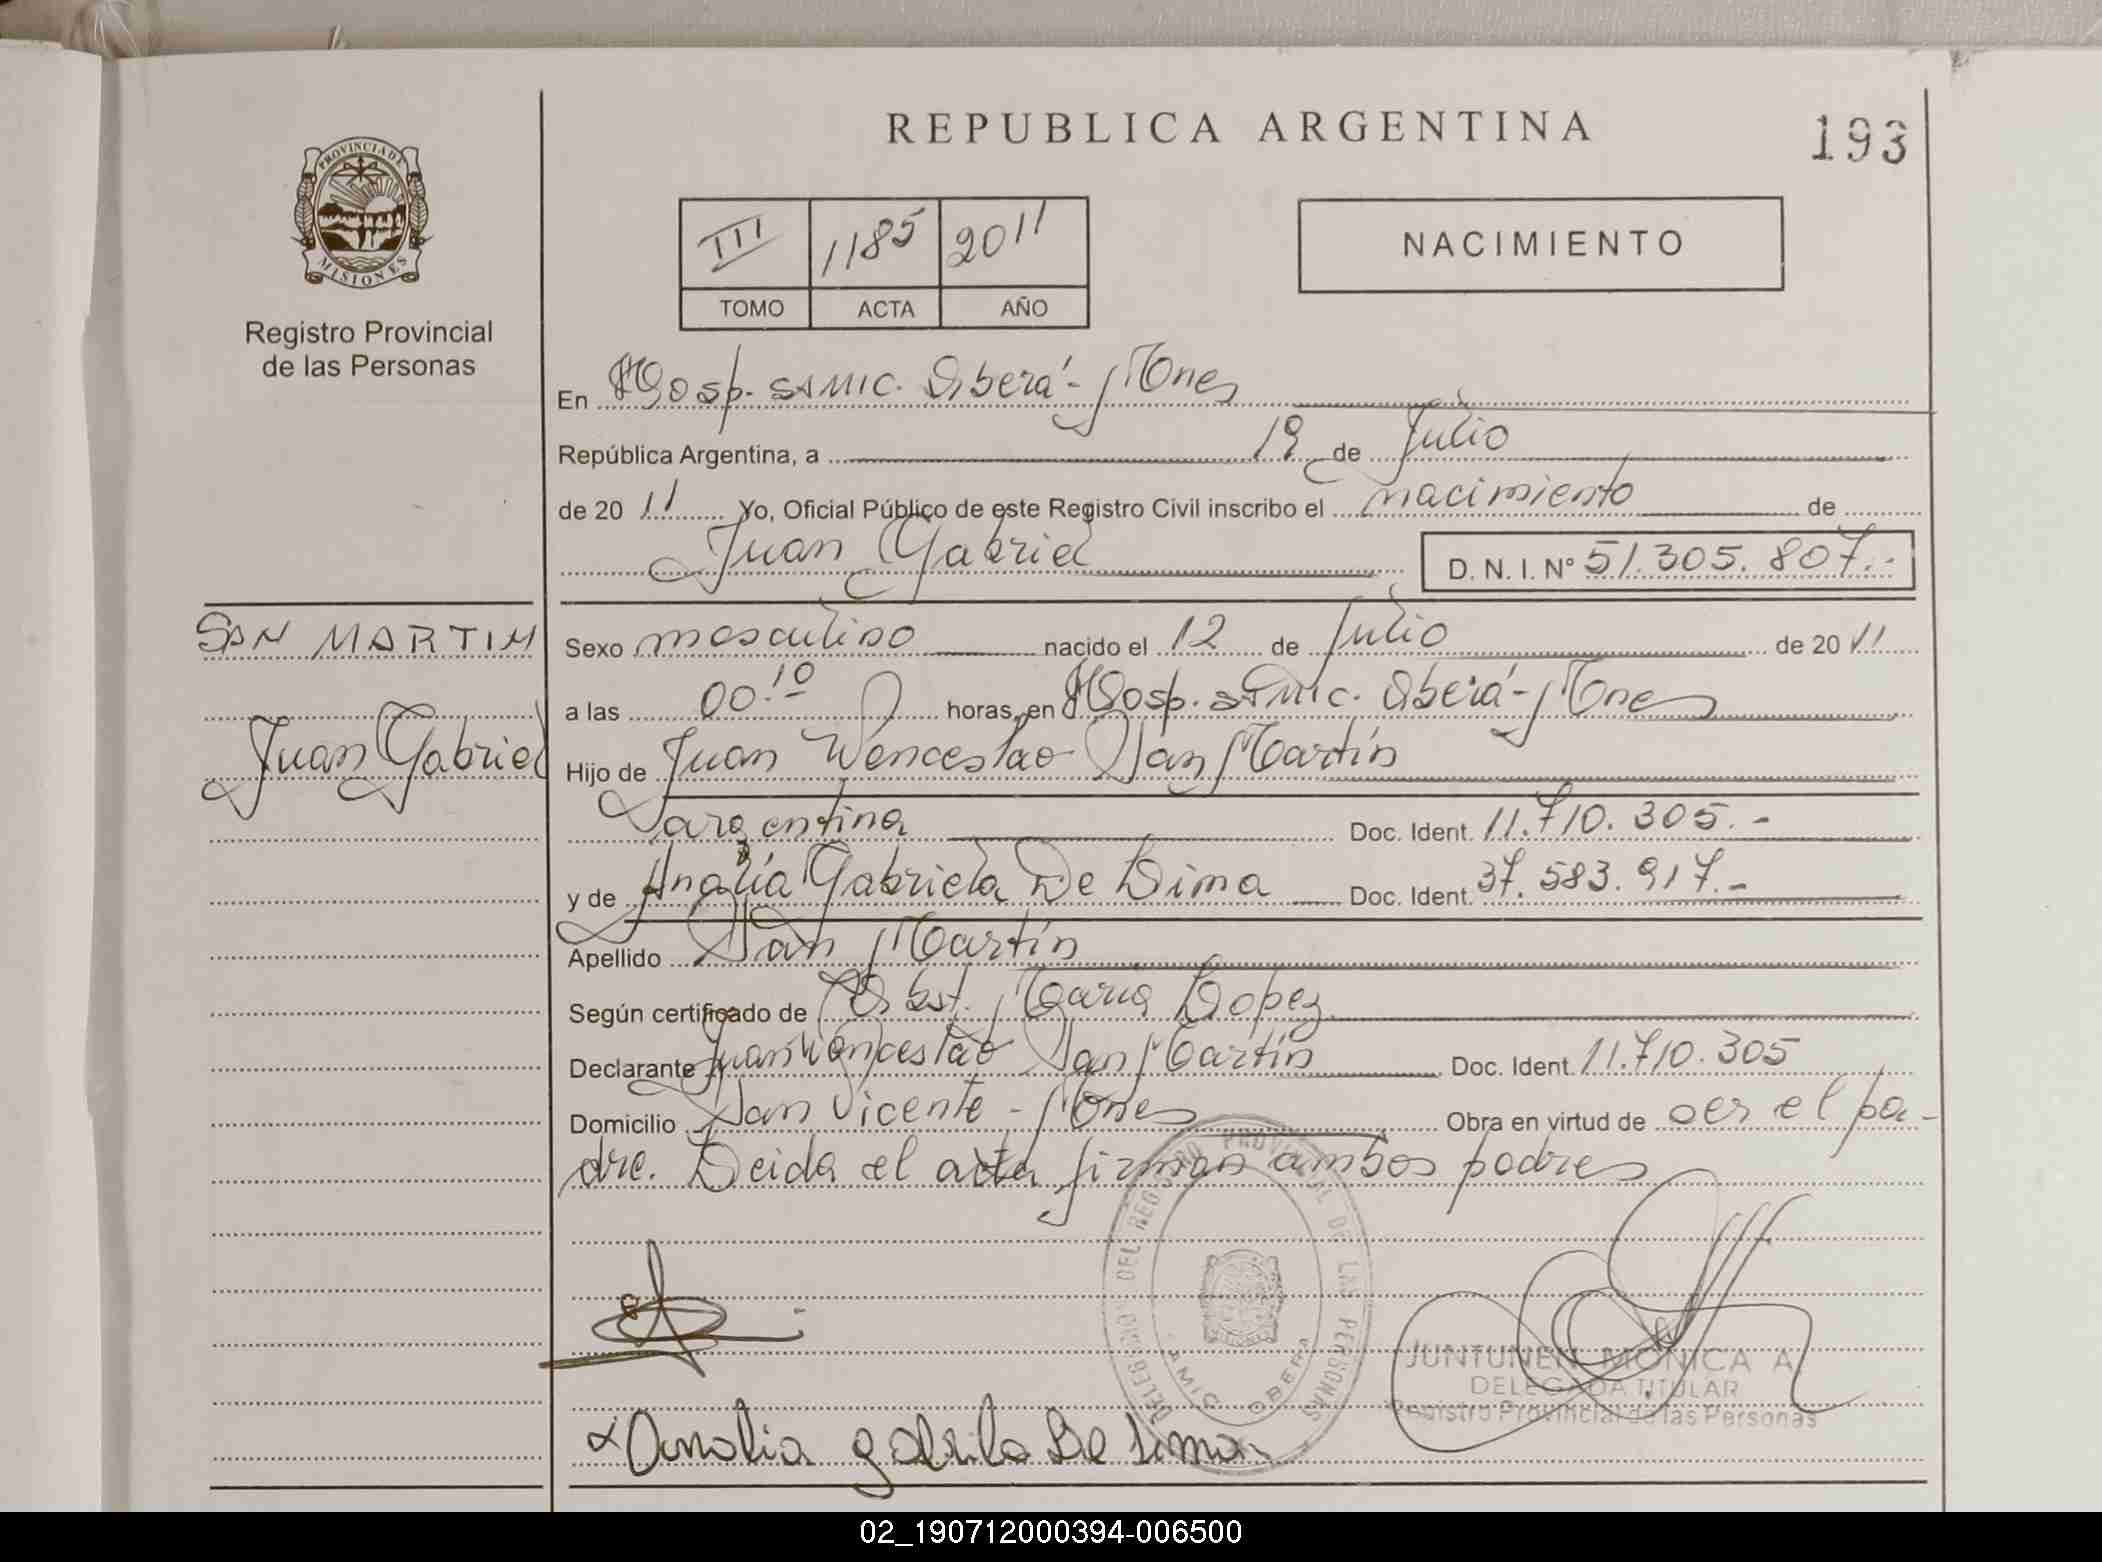 REPUBLICA ARGENTINA
193
PROVINCIA DE
MISIONES
Registro Provincial
de las Personas
III 1185 2011
TOMO ACTA AÑO
NACIMIENTO
En Hosp. SAMIC. Oberá - Mnes
República Argentina, a 19 de Julio
de 20 11 Yo, Oficial Público de este Registro Civil inscribo el nacimiento de
Juan Gabriel D. N. I. Nº 51.305.807.-
SAN MARTIN
Juan Gabriel
Sexo masculino nacido el 12 de Julio de 20 11
a las 00:10 horas, en Hosp. SAMIC. Oberá - Mnes
Hijo de Juan Wenceslao San Martín
argentina Doc. Ident. 11.710.305.-
y de Analía Gabriela De Lima Doc. Ident. 37.583.917.-
Apellido San Martín
Según certificado de Obst. María Lopez
Declarante Juan Wenceslao San Martín Doc. Ident. 11.710.305
Domicilio San Vicente - Mnes Obra en virtud de ser el pa-
dre. Leida el acta firman ambos padres
DELEGACION DEL REGISTRO PROVINCIAL DE LAS PERSONAS
SAMIC OBERA
JUNTUNEN MONICA A.
DELEGADA TITULAR
Registro Provincial de las Personas
Analia gabriela De Lima
02_190712000394-006500